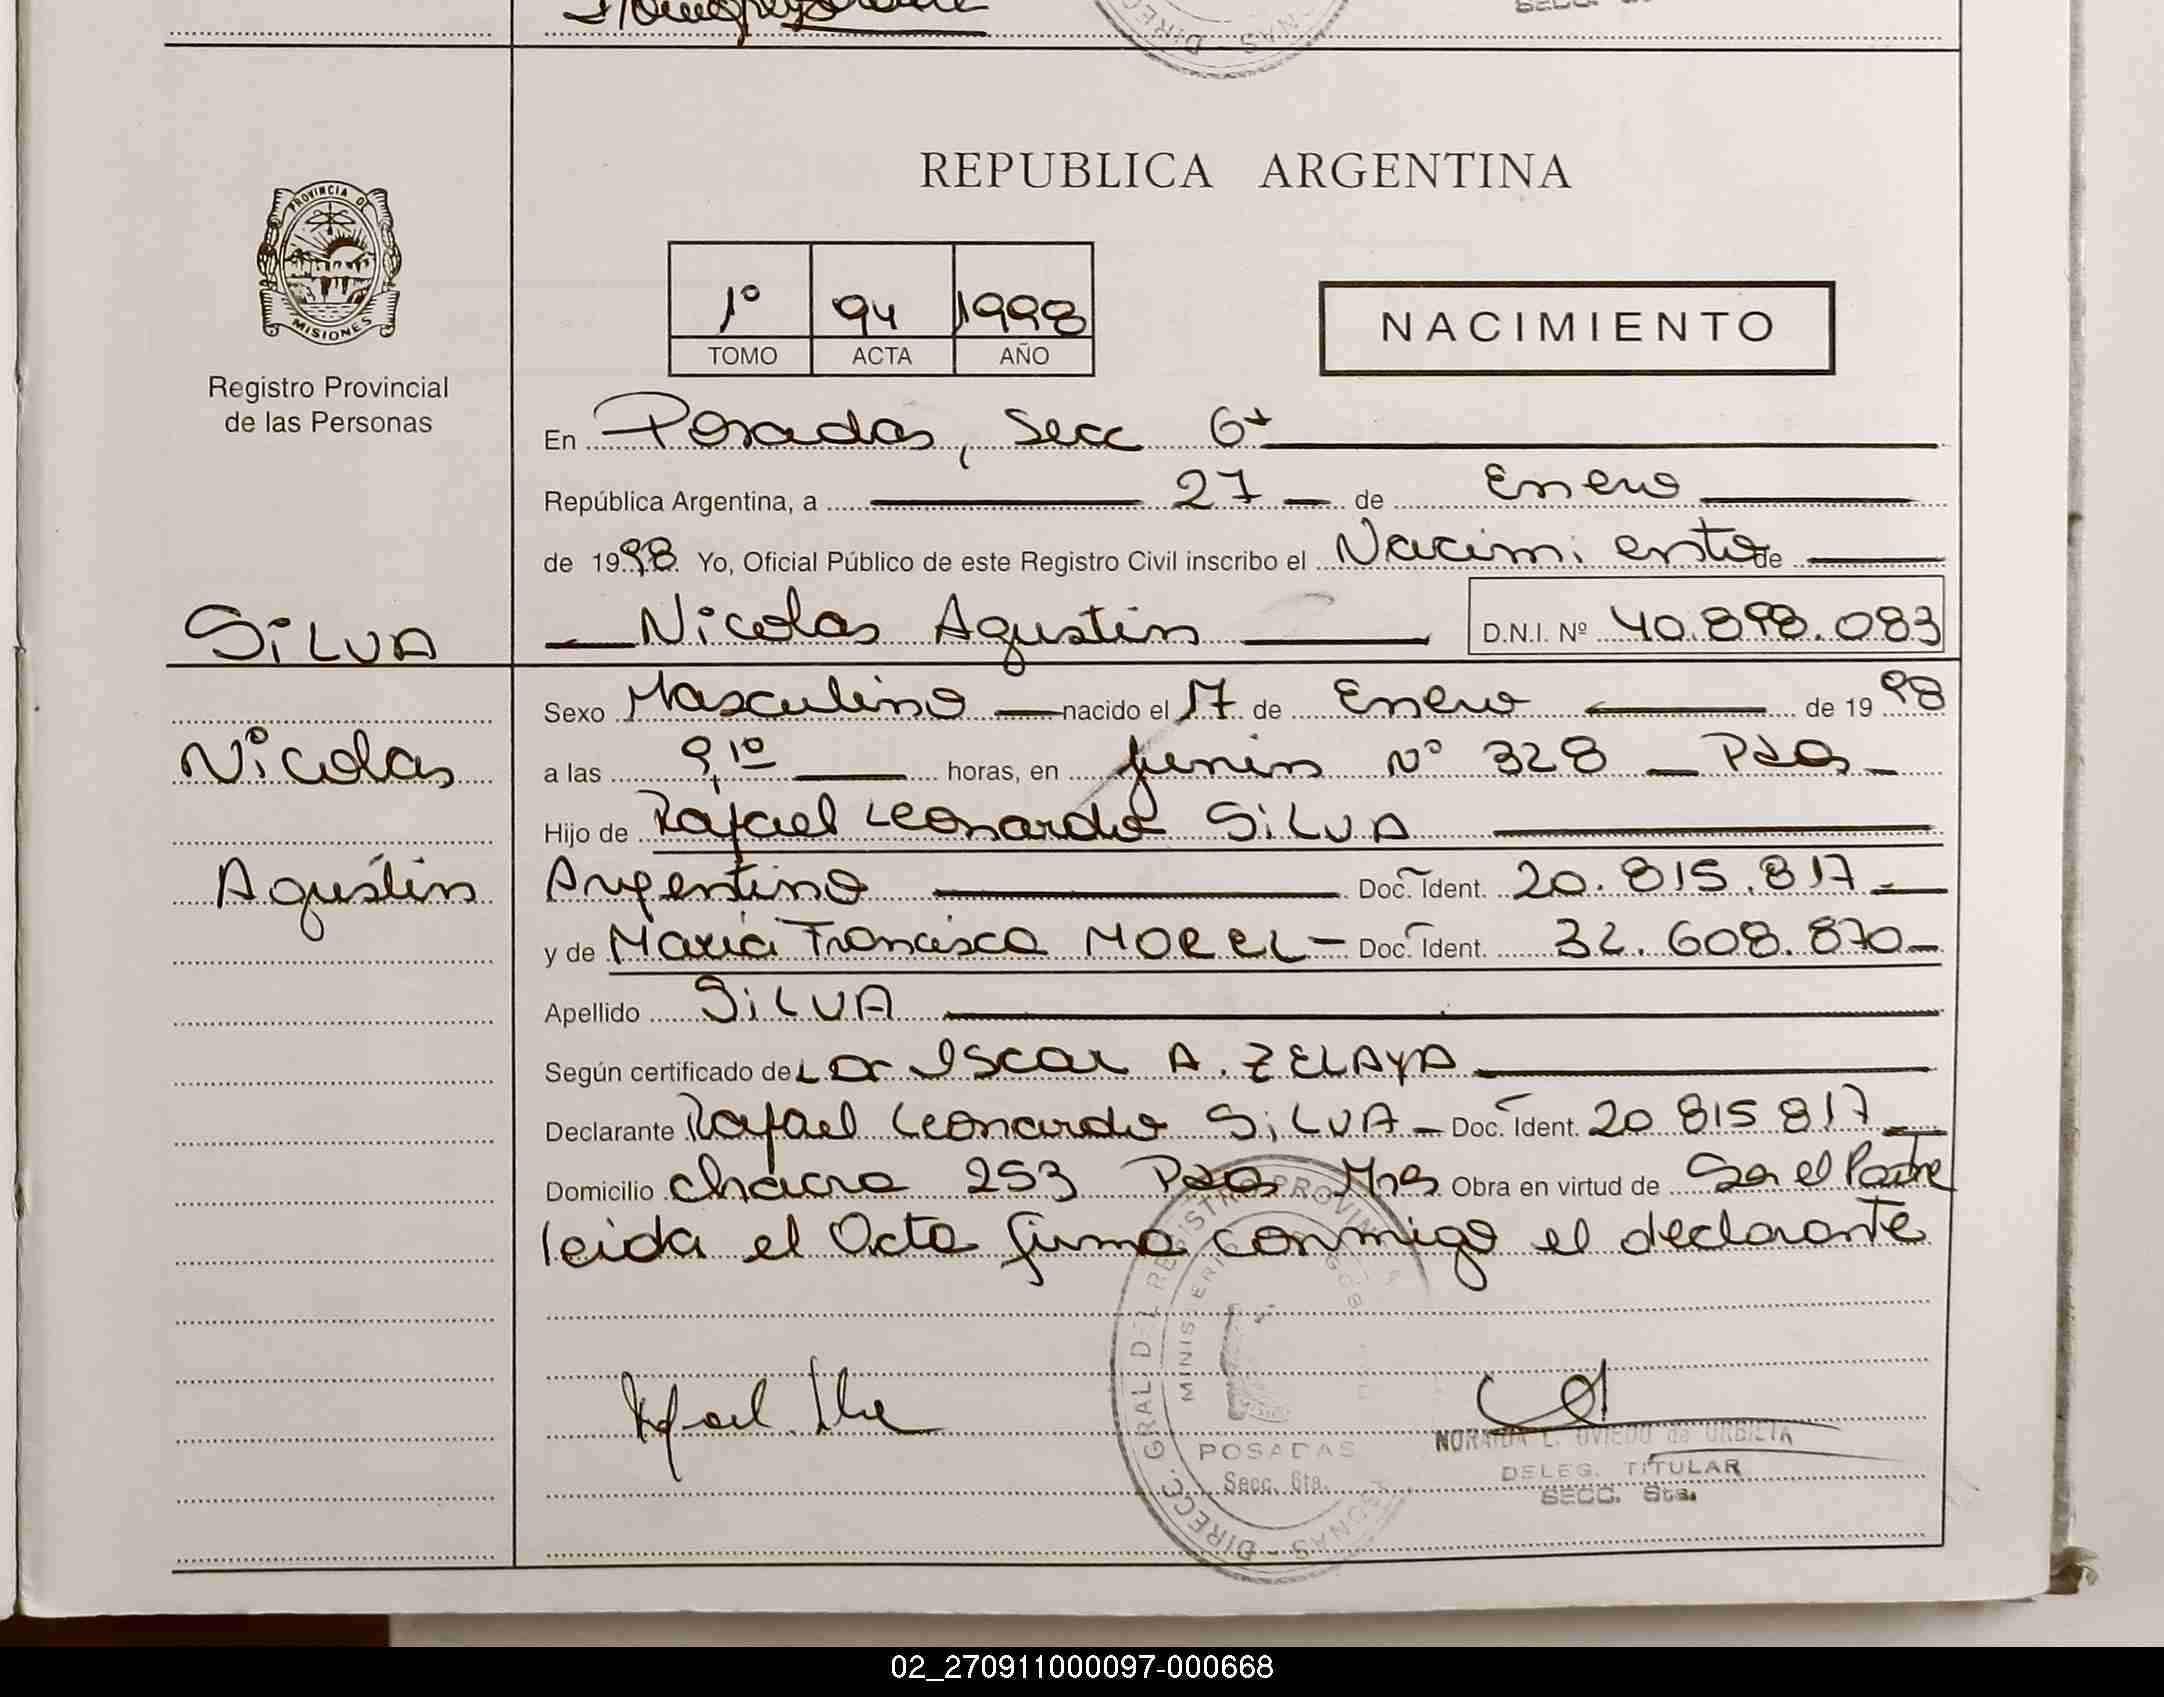 REPUBLICA ARGENTINA
PROVINCIA DE
MISIONES
Registro Provincial
de las Personas
1º 94 1998
TOMO ACTA AÑO
NACIMIENTO
En Posadas, Secc 6ª
República Argentina, a 27 de Enero
de 1998 Yo, Oficial Público de este Registro Civil inscribo el Nacimiento de
SILVA
Nicolas Agustin D.N.I. Nº 40.898.083
Sexo Masculino nacido el 17 de Enero de 1998
Nicolas
a las 9,10 horas, en Junin Nº 328 Pdas
Hijo de Rafael Leonardo SILVA
Agustin
Argentino Doc. Ident. 20.815.817
y de Maria Francisca MOREL Doc. Ident. 32.608.870
Apellido SILVA
Según certificado de A. ZELAYA
Declarante Rafael Leonardo SILVA Doc. Ident. 20 815 817
Domicilio chacra 253 Pdas Mnes Obra en virtud de Ser el Padre
leida el Acta firma conmigo el declarante
POSADAS
Secc. 6ta.
NORAIDA L. OVIEDO de URBIETA
DELEG. TITULAR
SECC. 6ta.
02_270911000097-000668